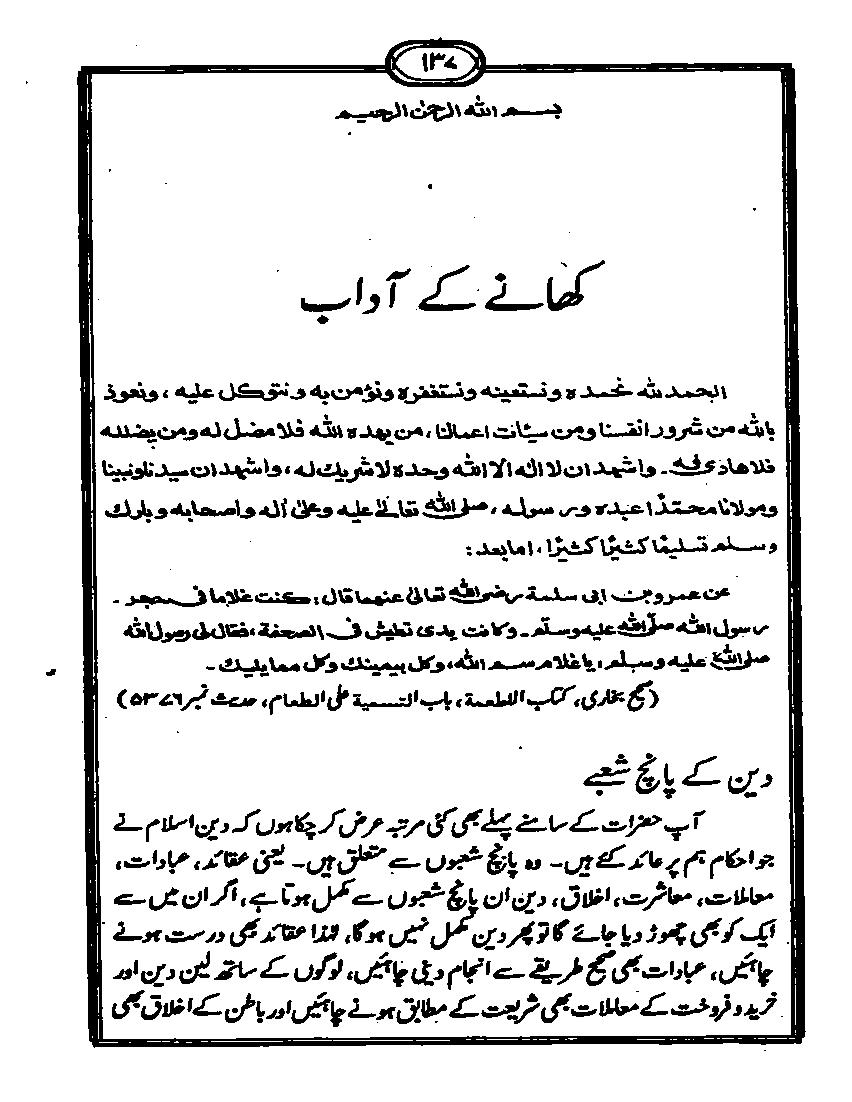 ۱۳۷
بسم الله الرحمٰن الرحيم
کھانے کے آداب
الحمد لله نحمده ونستعينه ونستغفره ونؤمن به ونتوكل عليه، ونعوذ
بالله من شرور انفسنا ومن سيئات اعمالنا، من يهده الله فلا مضل له ومن يضلله
فلا هادى له۔ واشهد ان لا اله الا الله وحده لا شريك له، واشهد ان سيدنا ونبينا
ومولانا محمدًا عبده ورسوله، صلى الله تعالىٰ عليه وعلىٰ آله واصحابه وبارك
وسلم تسليمًا كثيرًا كثيرًا، اما بعد:
عن عمرو بن ابى سلمة رضى الله تعالىٰ عنهما قال: كنت غلاما فى حجر۔
رسول الله صلى الله عليه وسلم۔ وكانت يدى تطيش فى الصحفة، فقال لى رسول الله
صلى الله عليه وسلم، يا غلام سم الله، وكل بيمينك وكل مما يليك۔
(صحیح بخاری، کتاب الاطعمة، باب التسمية على الطعام، حدیث نمبر ۵۳۷۶)
دین کے پانچ شعبے
آپ حضرات کے سامنے پہلے بھی کئی مرتبہ عرض کر چکا ہوں کہ دین اسلام نے
جو احکام ہم پر عائد کئے ہیں۔ وہ پانچ شعبوں سے متعلق ہیں۔ یعنی عقائد، عبادات،
معاملات، معاشرت، اخلاق، دین ان پانچ شعبوں سے مکمل ہوتا ہے، اگر ان میں سے
ایک کو بھی چھوڑ دیا جائے گا تو پھر دین مکمل نہیں ہوگا، لہٰذا عقائد بھی درست ہونے
چاہئیں، عبادات بھی صحیح طریقے سے انجام دینی چاہئیں، لوگوں کے ساتھ لین دین اور
خرید و فروخت کے معاملات بھی شریعت کے مطابق ہونے چاہئیں اور باطن کے اخلاق بھی